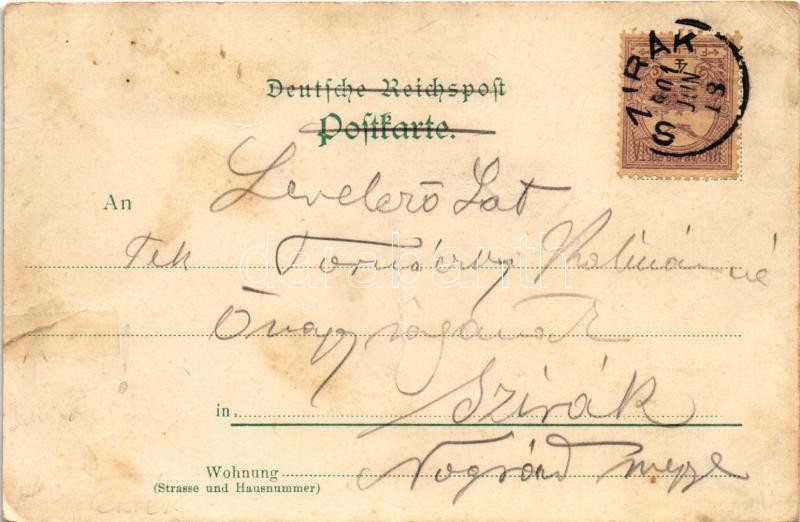 SZIRÁK
901 JUN 13
MAGYAR KIR. POSTA
Deutsche Reichspost
Postkarte.
An
Levelező Lap
Tek Tornácky Kálmánné
Őnagyságának
in Szirák
Wohnung Nógrád megye
(Strasse und Hausnummer)
darabanth